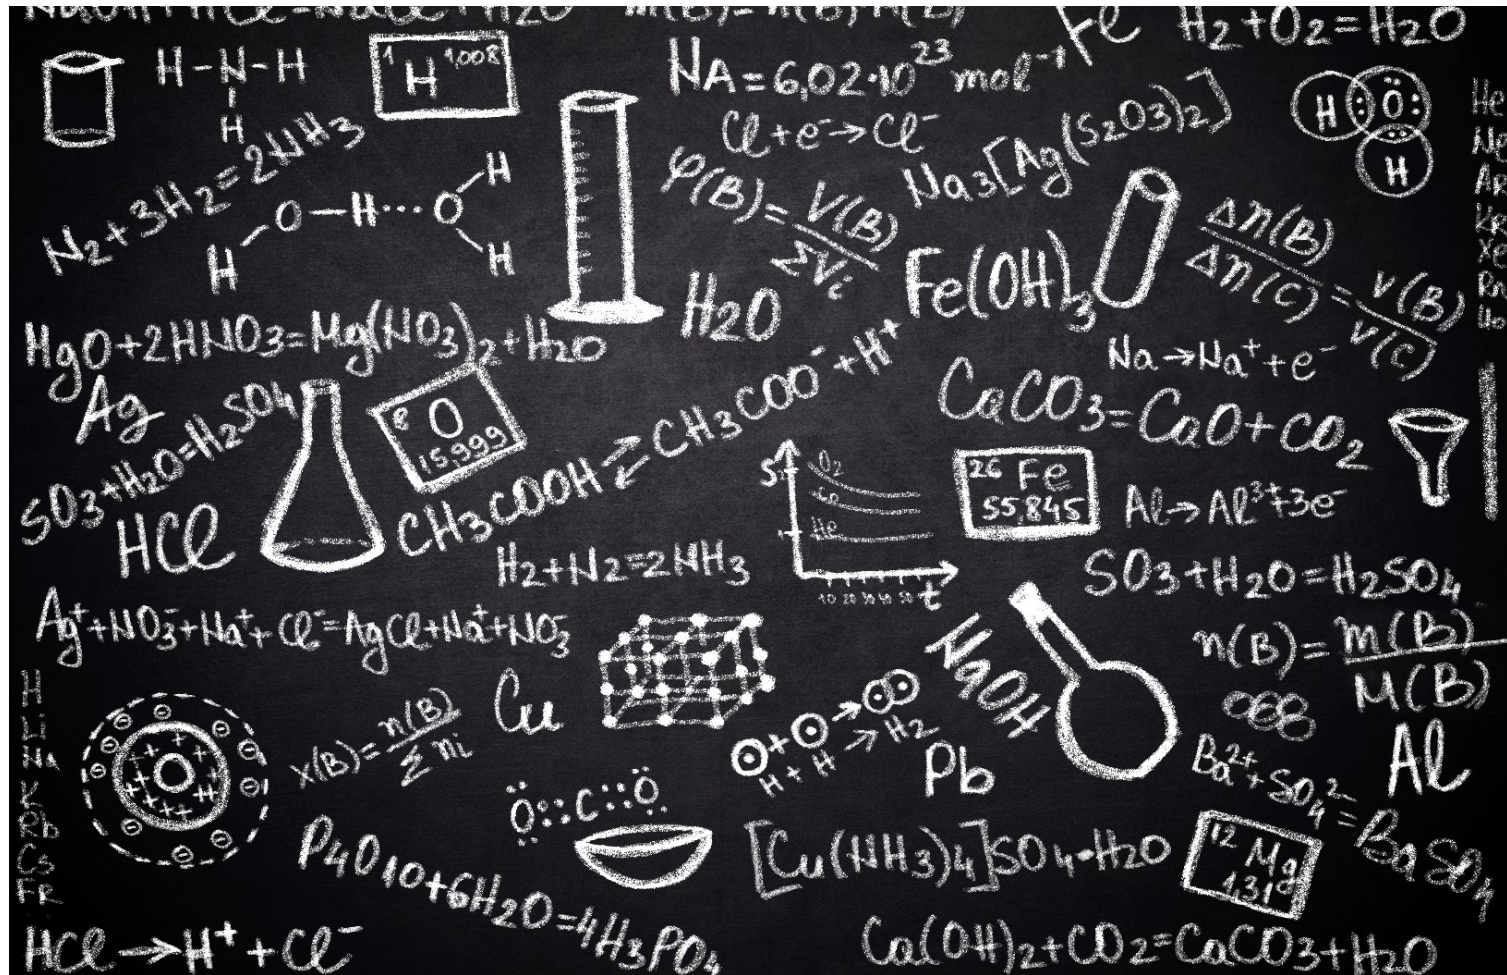 NaOH+HCl=NaCl+H2O
Fe
H2+O2=H2O
H-N-H
H
1 H 1,008
NA=6,02·10²³ mol⁻¹
Cl+e⁻→Cl⁻
Na3[Ag(S2O3)2]
H:Ö:
H
He
Ne
Ar
Kr
Xe
Rn
N2+3H2=2NH3
O-H···O
H
H
H
φ(B)=V(B)/ΣVi
Fe(OH)3
Δn(B)/Δn(C)=ν(B)/ν(C)
H2O
MgO+2HNO3=Mg(NO3)2+H2O
Na→Na⁺+e⁻
Ag
8 O
15,999
CaCO3=CaO+CO2
SO3+H2O=H2SO4
CH3COOH⇄CH3COO⁻+H⁺
S
O2
He
10 20 30 40 50 t
26 Fe
55,845
Al→Al³⁺+3e⁻
HCl
H2+N2=2NH3
SO3+H2O=H2SO4
Ag⁺+NO3⁻+Na⁺+Cl⁻=AgCl+Na⁺+NO3⁻
n(B)=m(B)/M(B)
NaOH
H
Li
Na
K
Rb
Cs
FR
x(B)=n(B)/Σni
Cu
H+H→H2
Pb
Al
Ba²⁺+SO4²⁻=BaSO4
Ö::C::Ö
P4O10+6H2O=4H3PO4
[Cu(NH3)4]SO4·H2O
12 Mg
1,31
HCl→H⁺+Cl⁻
Ca(OH)2+CO2=CaCO3+H2O